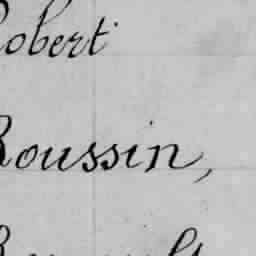 Robert
Roussin,